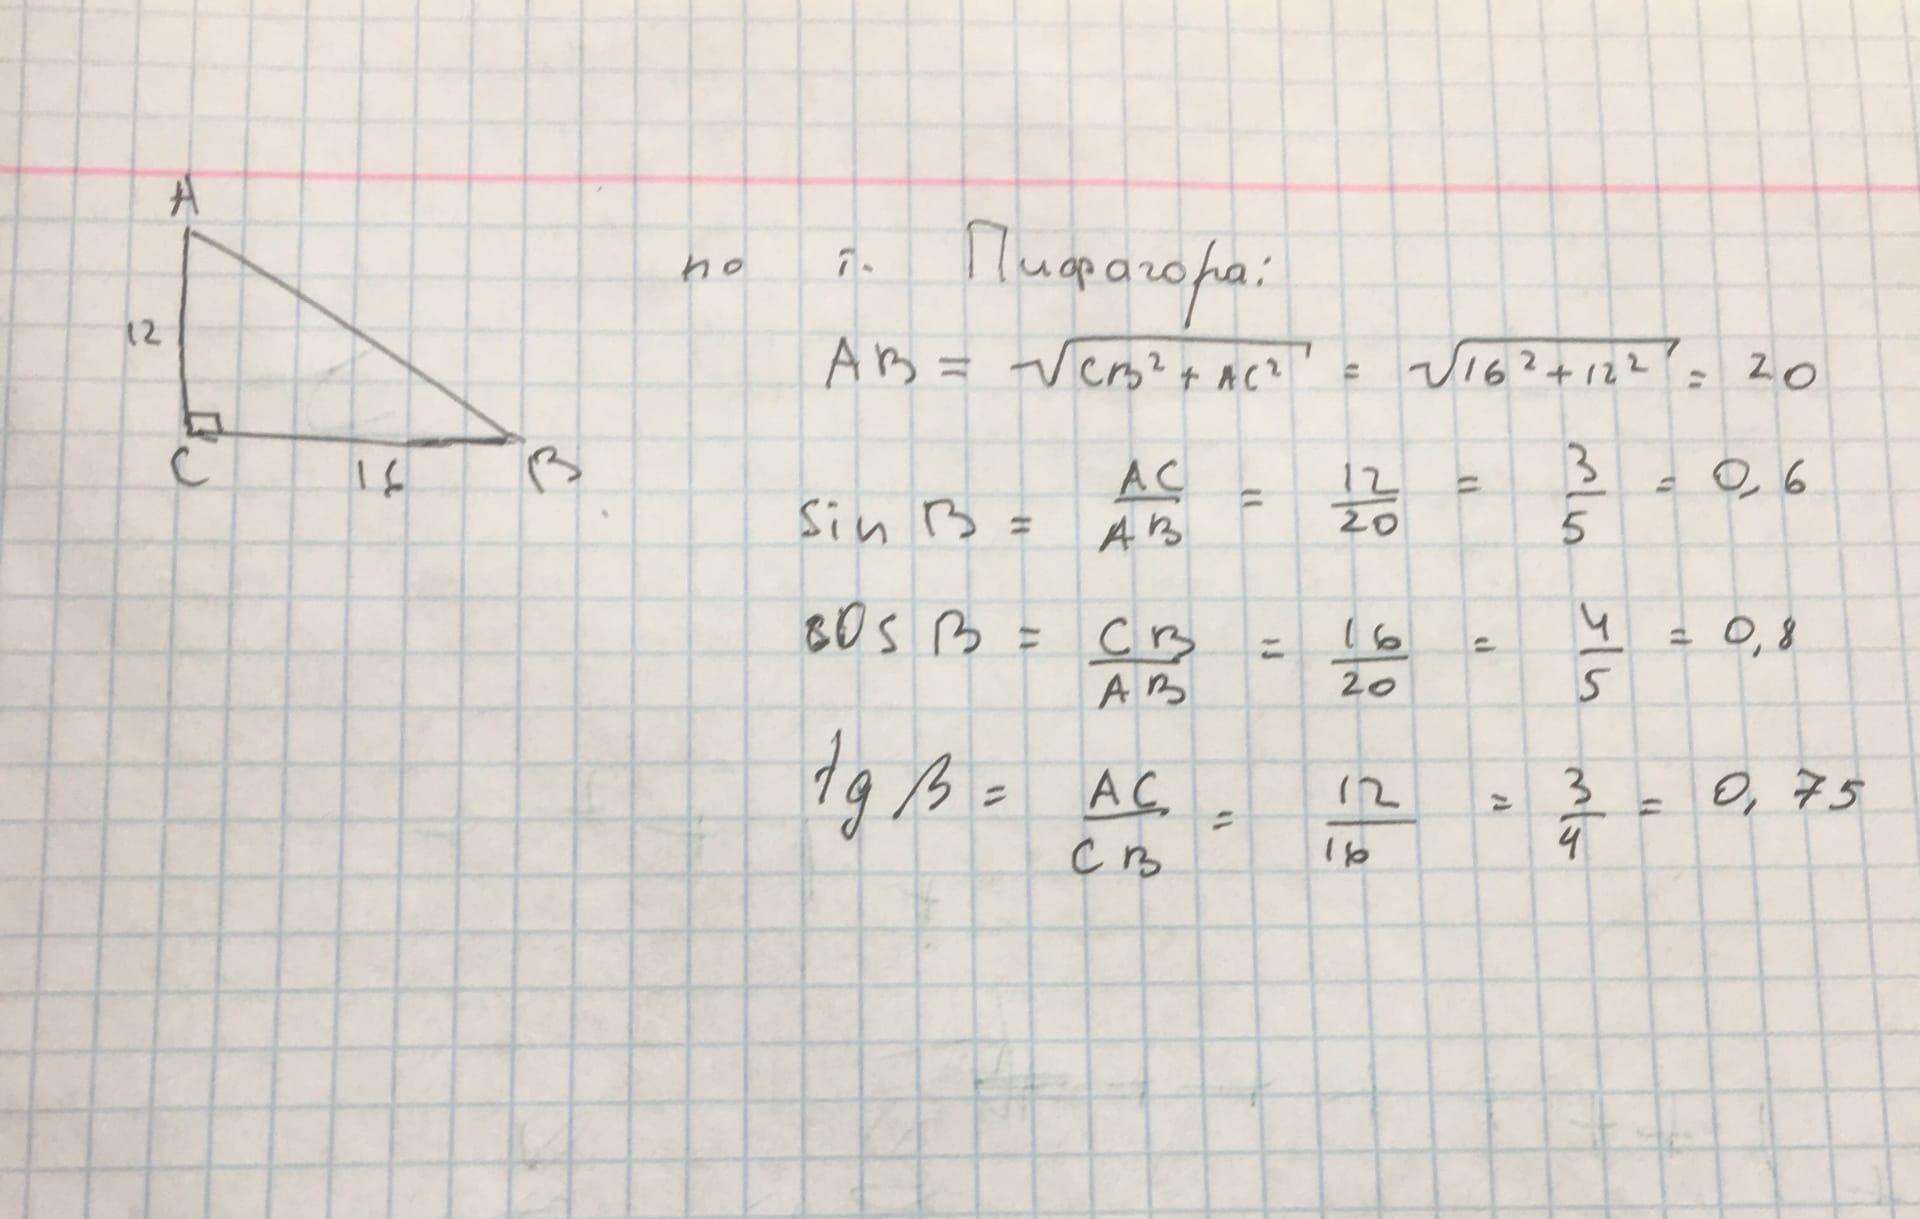 A
12
C
16
B
по т. Пифагора:
AB = √(CB² + AC²) = √(16² + 12²) = 20
sin B = AC/AB = 12/20 = 3/5 = 0,6
cos B = CB/AB = 16/20 = 4/5 = 0,8
tg B = AC/CB = 12/16 = 3/4 = 0,75